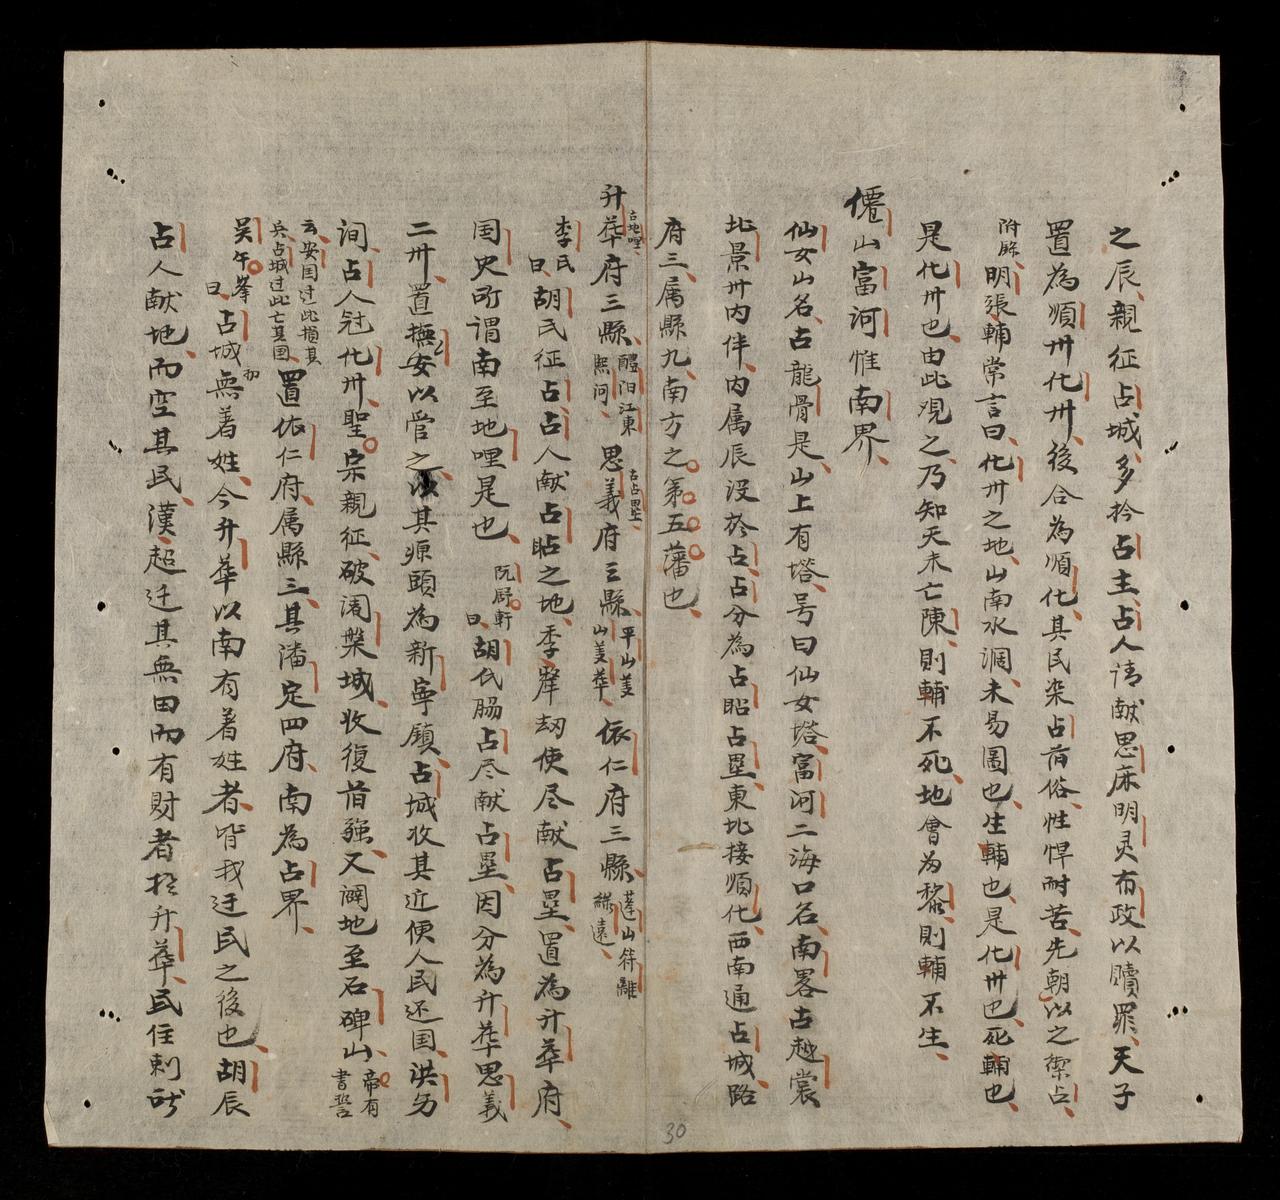 之辰親征占城多扲占主占人请献思庥明灵布政以贖罪天子
置為順卅化卅後合為順化其民染占俗性悍耐苦先朝以之禦占
附縣明張輔常言曰化卅之地山南水澗未易圖也生輔也是化卅也死輔也
是化卅也由此观之乃知天未亡陳則輔不死地會為黎則輔不生
僊山富河惟南界
仙女山名古龍骨是山上有塔号曰仙女塔富河二海口名南畧古越裳
北景卅内伴内属辰没於占占分為占占壘東北接順化西南通占城路
府三属縣九南方之第五藩也
升華府三縣醴江東熙河思義府三縣平山義山美華依仁府三縣蓬山符離綏遠
古地哩
古占壘
李氏曰胡氏征占占人献占之地季犛刧使尽献占壘置為升華府
国史所謂南至地哩是也阮厚軒曰胡氏脇占尽献占壘因分為升華思義
二卅置撫安以管之其源頭為新寧鎮占城收其近便人民还国洪
间占人冦化卅聖宗親征破闍槃城收復旧疆又闢地至石碑山帝有書誓
云安国过此损其兵占城过此亡其国置依仁府属縣三其潘定四府南為占界
吴午峯曰占城初無着姓今升華以南有着姓者皆我迁民之後也胡辰
占人献地而空其民漢超迁其無田而有財者於升華民住刺